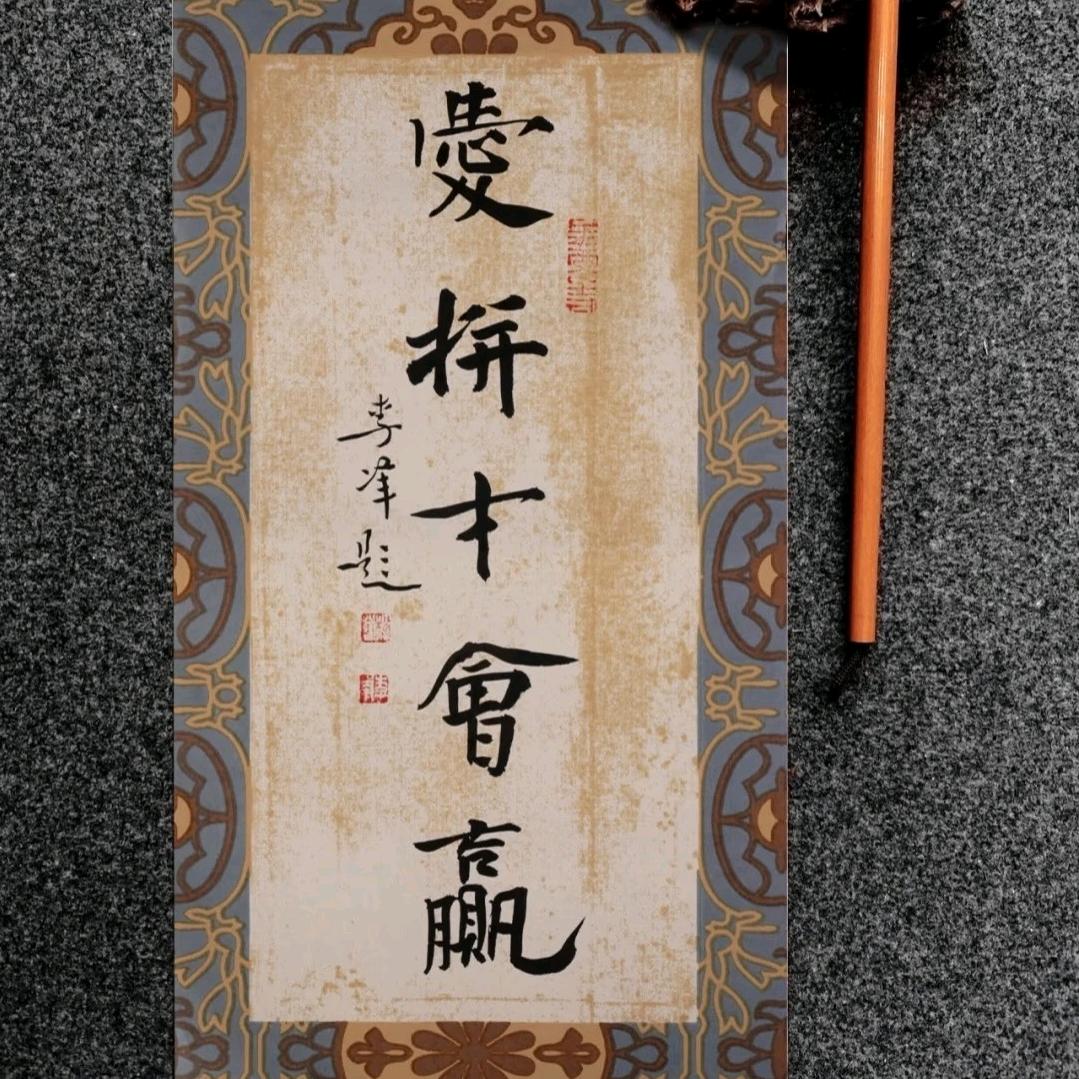 愛拼才會贏
李峰題